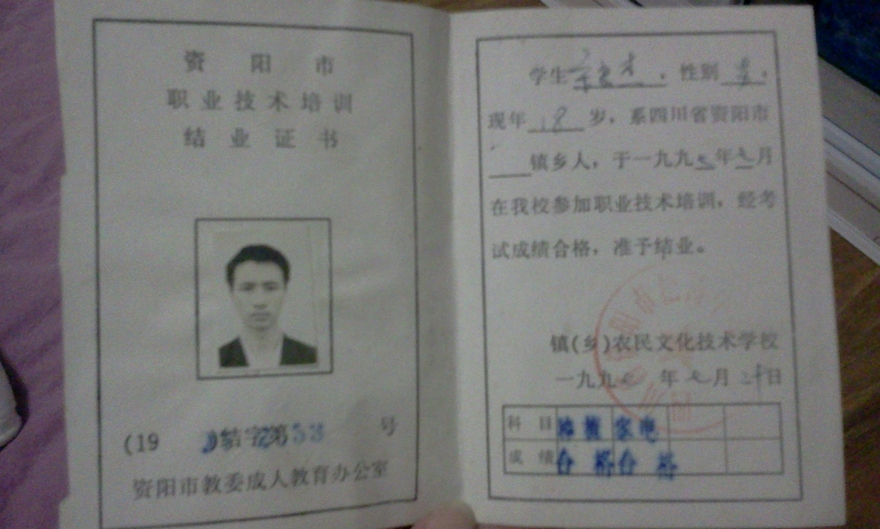 资阳市
职业技术培训
结业证书
(19 结字第53号
资阳市教委成人教育办公室
学生 ,性别 男,
现年18岁,系四川省资阳市
镇乡人,于一九九 年 月
在我校参加职业技术培训,经考
试成绩合格,准予结业。
镇(乡)农民文化技术学校
一九九 年 月 日
科目 种植 家电
成绩 合格 合格